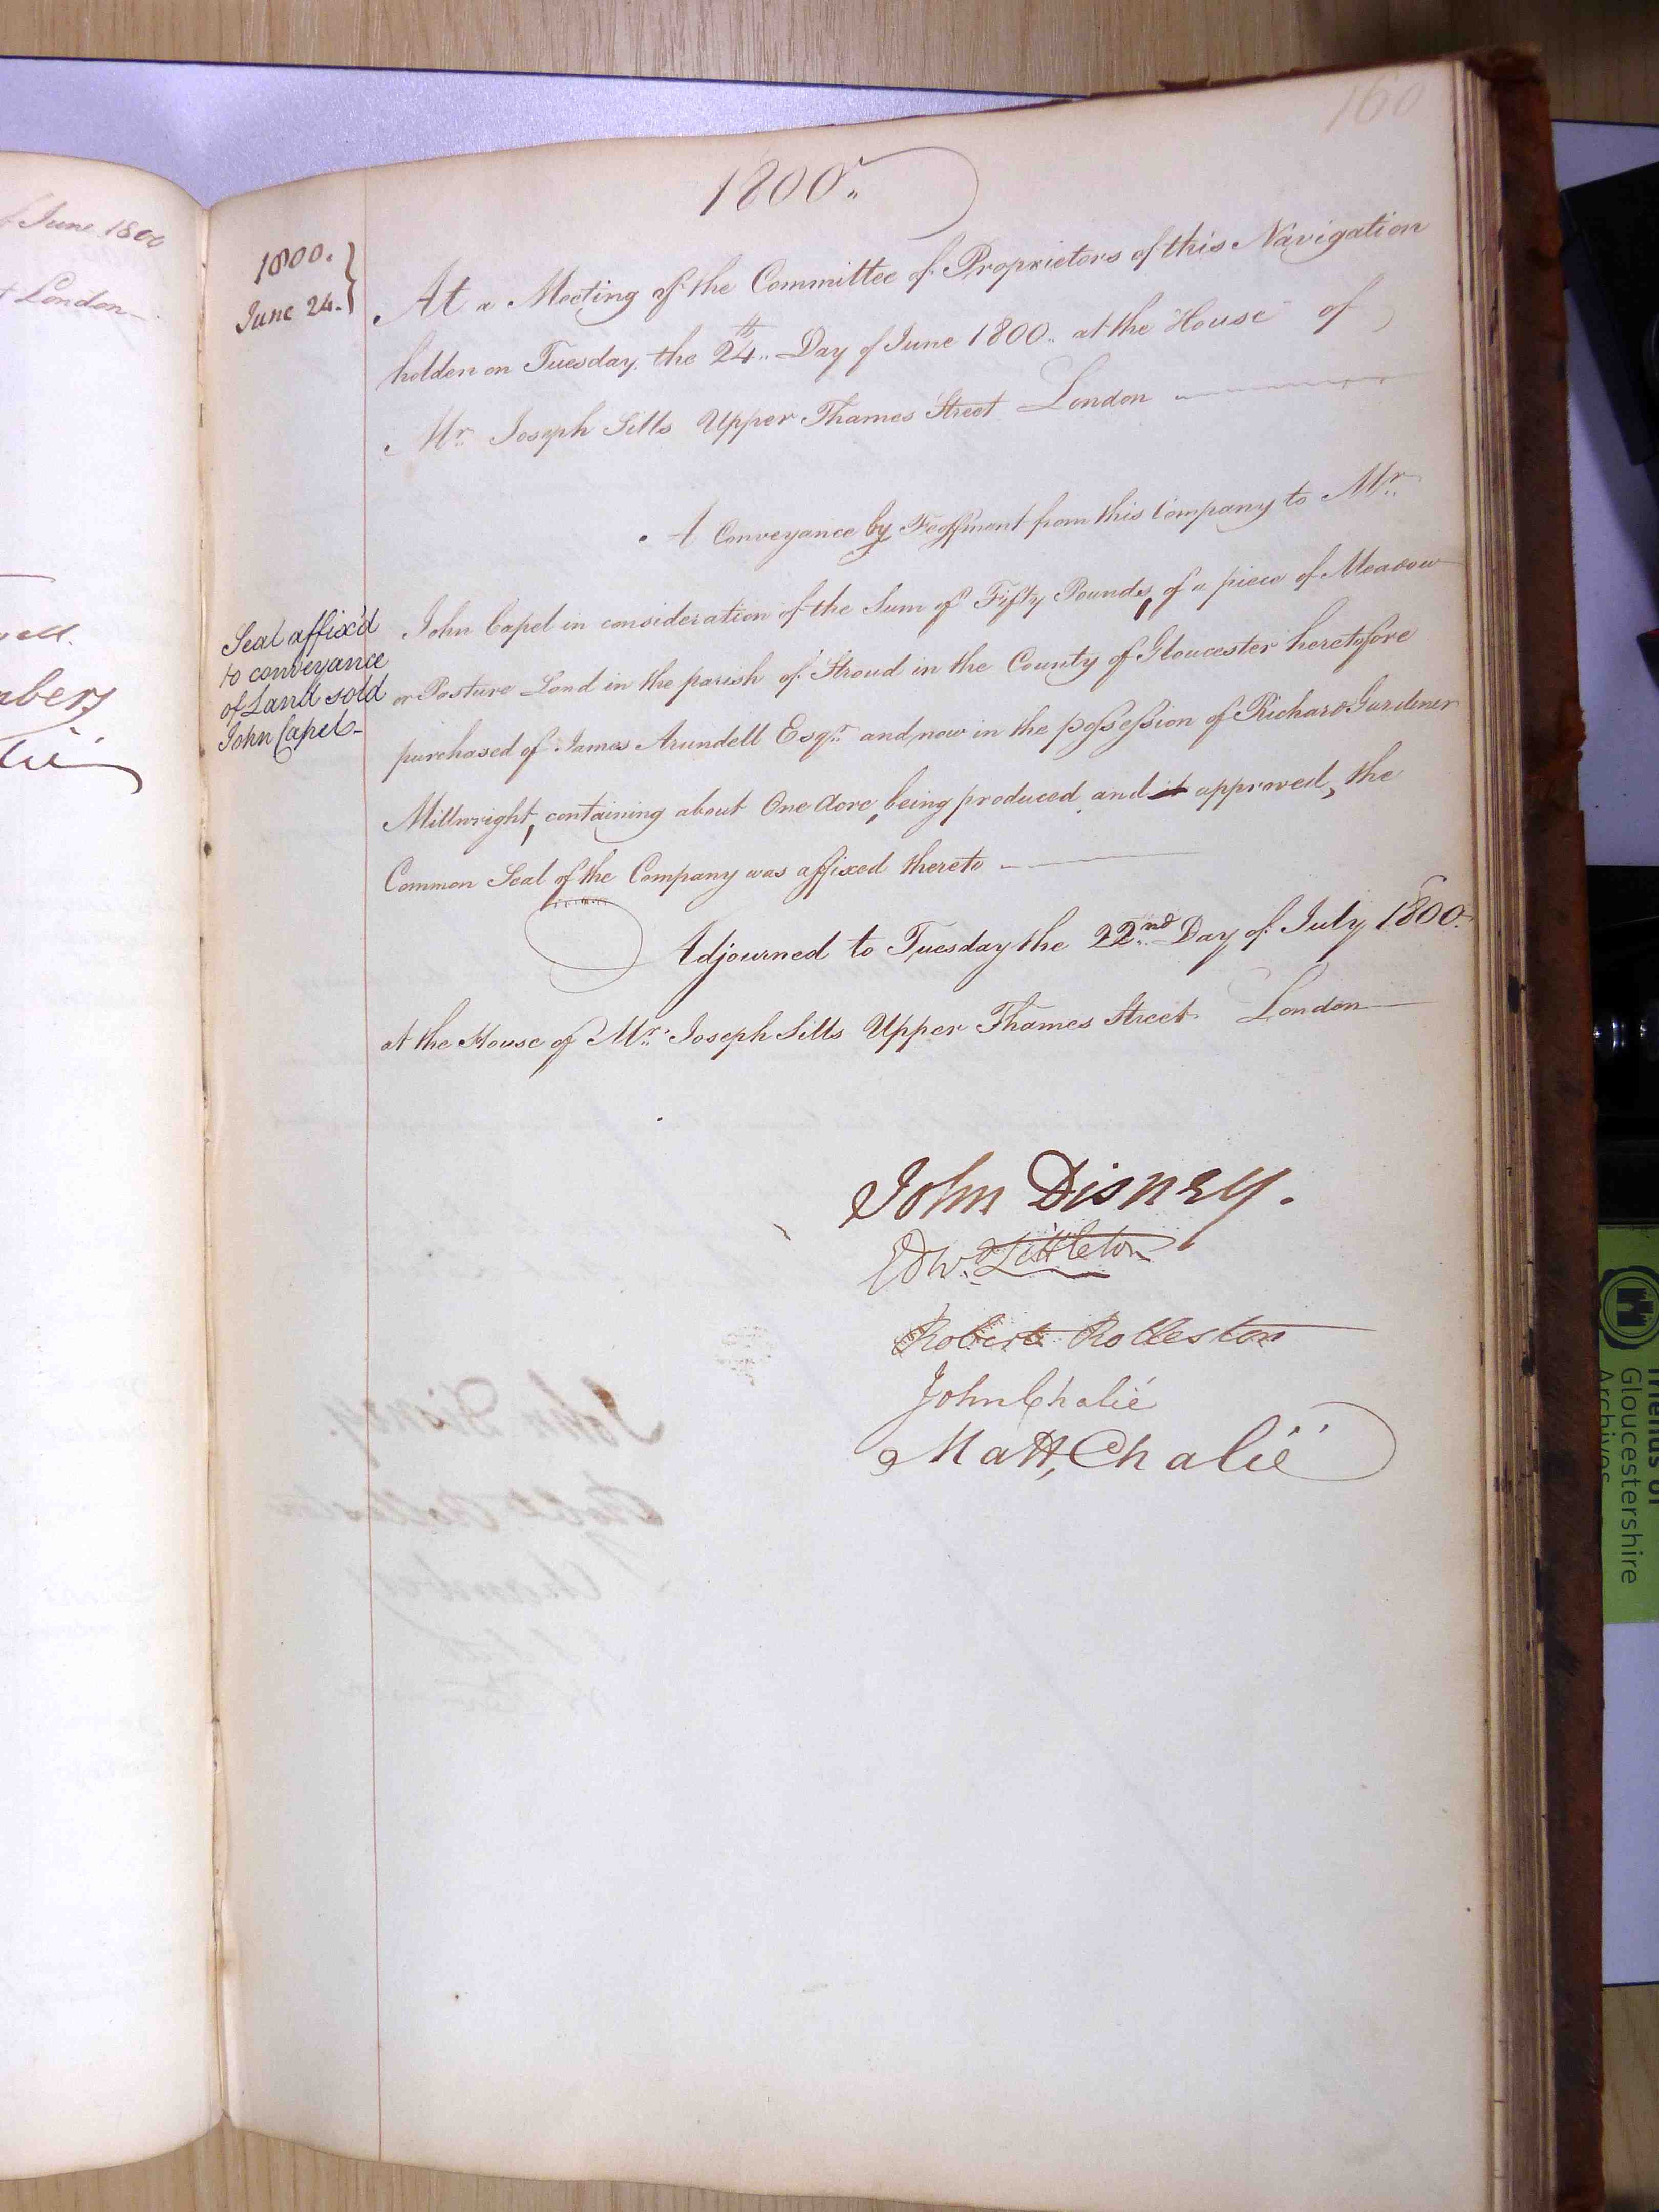 160
f June 1800
London
1800.
1800.
June 24.
At a Meeting of the Committee of Proprietors of this Navigation
holden on Tuesday the 24th Day of June 1800 at the House of
Mr. Joseph Sills Upper Thames Street London
A Conveyance by Feoffment from this Company to Mr.
Seal affix'd
to conveyance
of Land sold
John Capel
John Capel in consideration of the Sum of Fifty Pounds, of a piece of Meadow
or Pasture Land in the parish of Stroud in the County of Gloucester heretofore
purchased of James Arundell Esqr. and now in the possession of Richard Gardener
Millwright, containing about One Acre, being produced and it approved, the
Common Seal of the Company was affixed thereto
Adjourned to Tuesday the 22nd Day of July 1800.
at the House of Mr. Joseph Sills Upper Thames Street London
John Disney.
Edwd. Littleton
Robert Rolleston
John Chalié
Matt, Chalié
Friends of
Gloucestershire
Archives